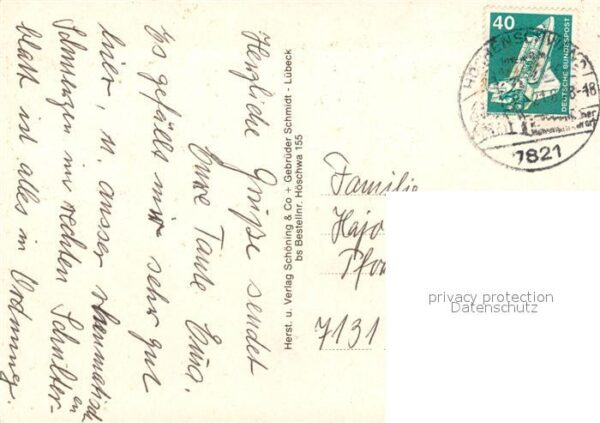 Herzliche Grüße sendet
Eure Tante Erna.
Es gefällt mir sehr gut
hier, u. ausser rheumatisch
en
Schmerzen im rechten Schulter-
blatt ist alles in Ordnung.
Herst. u. Verlag Schöning & Co + Gebrüder Schmidt - Lübeck
bs Bestellnr. Höschwa 155
40
DEUTSCHE BUNDESPOST
7821
Familie
Hajo
7131
privacy protection
Datenschutz